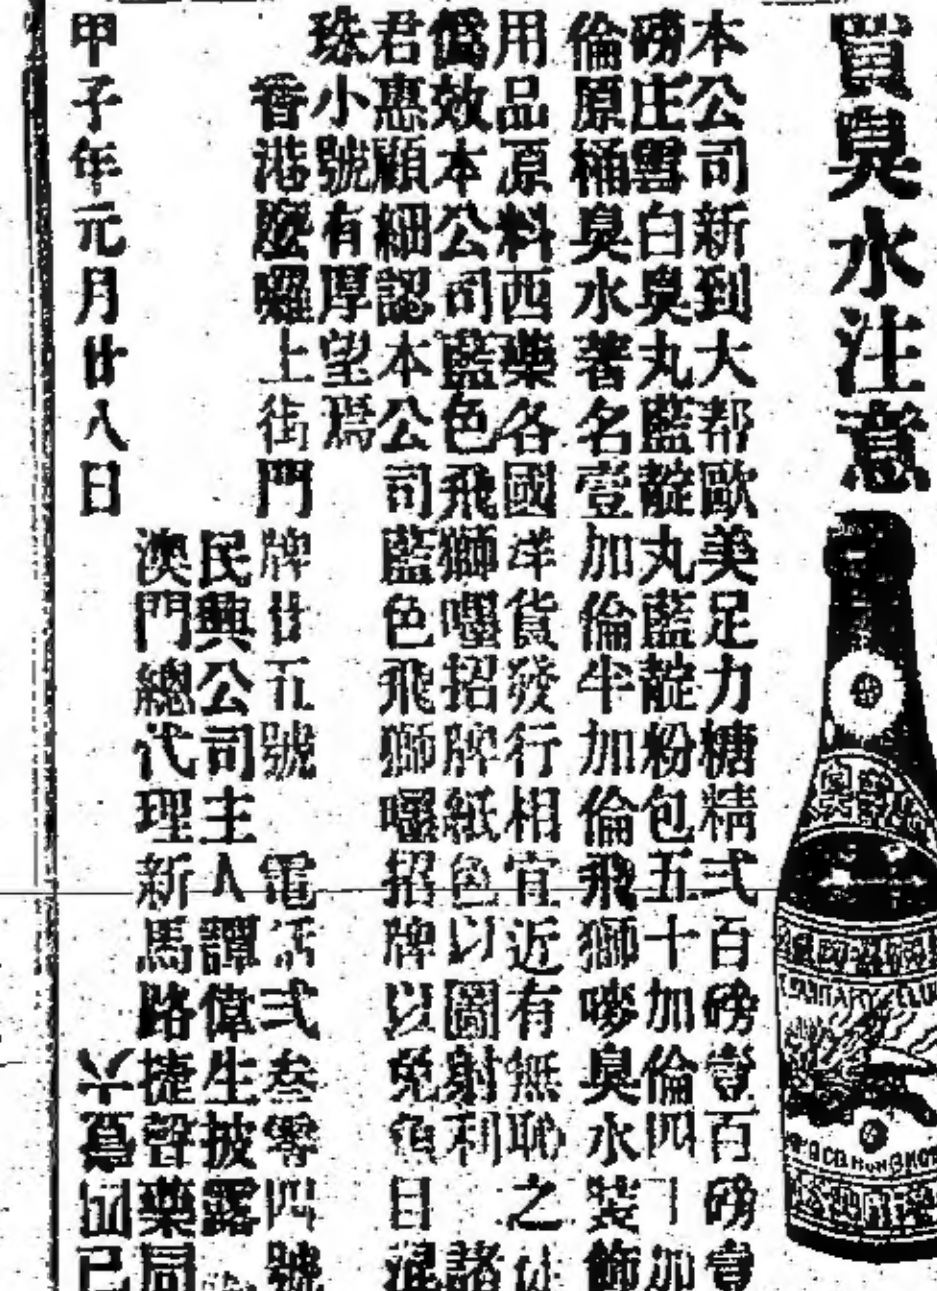 買臭水注意
本公司新到大帮歐美足力糖精弍百磅壹百磅壹
磅庄雪白臭丸藍靛丸藍靛粉包五十加倫四丨加
倫原桶臭水著名壹加倫半加倫飛獅嘜臭水裝飾
用品原料西藥各國洋貨發行相宜近有無恥之
僞效本公司藍色飛獅嚜招牌紙色以圖射利諸
君惠顧細認本公司藍色飛獅嚜招牌以免魚目混
珠小號有厚望焉
香港 上街門牌廿五號 電話弍叁零四號
民興公司主人譚偉生披露
澳門總代理新馬路捷聲藥同
甲子年元月廿八日
SANITARY FLUID
CO. HONGKONG